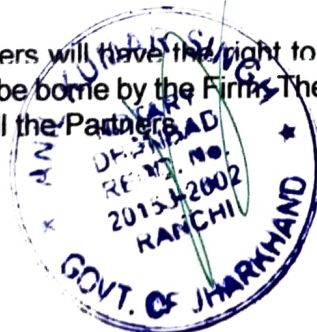 ers will have the right to
be borne by the Firm. The
l the Partners
NOTARY
DHANBAD
REGD. No.
2015J-2002
RANCHI
GOVT. OF JHARKHAND